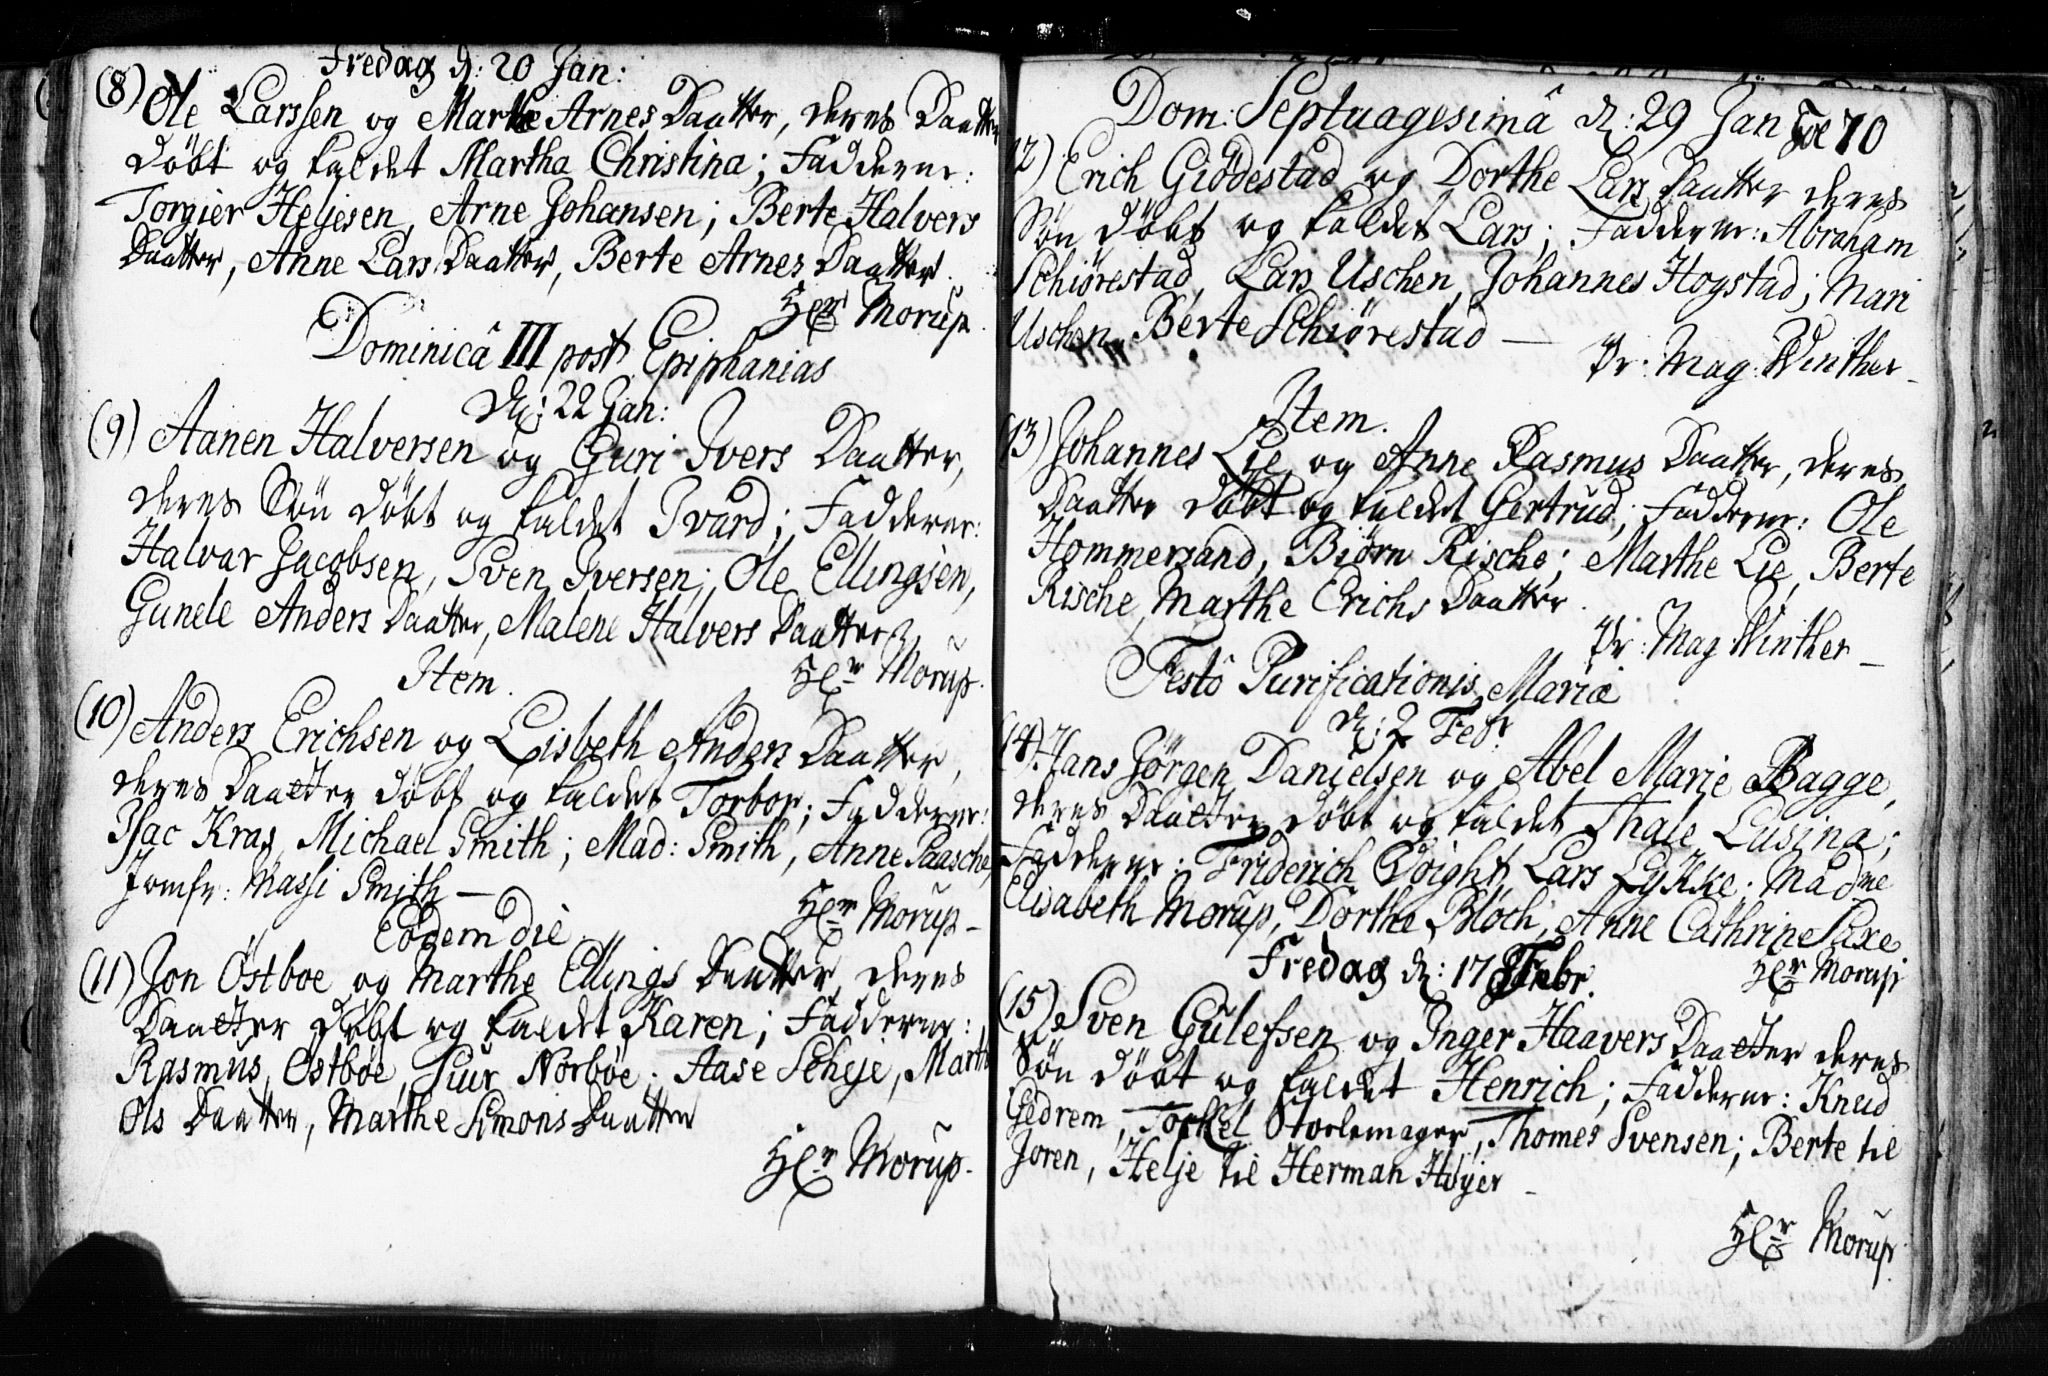 Fredag d: 20 Jan:
(8) Ole Larssen og Marthe Arnes Daatter, deres Daatter
døbt og kaldet Martha Christina; Fadderne:
Torgier Heljesen, Arne Johansen; Berte Halvers
Daatter, Anne Lars Daatter, Berte Arnes Daatter.
Hr Morup.
Dominicâ III post Epiphanias
d: 22 Jan:
(9) Aanen Halversen og Guri Ivers Daatter,
deres Søn døbt og kaldet Ivard; Fadderne:
Halvar Jacobsen, Sven Iversen; Ole Ellingsen,
Gunele Anders Daatter, Malene Halvers Daatter
Hr Morup.
Item.
(10) Anders Erichsen og Lisbeth Anders Daatter,
deres Daatter døbt og kaldet Torbor; Fadderne:
Isac Krag, Michael Smith; Mad: Smith, Anne Paasche,
Jomfr: Massi Smith —
Hr Morup –
Eodem die
(11) Jon Østboe og Marthe Ellings Daatter, deres
Daatter døbt og kaldet Karen; Fadderne:
Rasmus Ostbøe, Siur Norbøe; Aase Scheje, Marthe
Ols Daatter, Marthe Simons Daatter
Hr Morup.
Dom: Septuagesimâ d: 29 Jan Fol 70
12) Erich Giödestad og Dorthe Lars Daatter deres
Søn døbt og kaldet Lars; Fadderne: Abraham
Schiørestad, Lars Uschen, Johannes Hogstad; Mari
Uschen, Berte Schiørestad —
Pr: Mag: Winther –
Item.
(13) Johannes Lie og Anne Rasmus Daatter, deres
Daatter døbt og kaldet Gertrud; Fadderne: Ole
Hommersand, Biørn Rische; Marthe Lie, Berte
Rische, Marthe Erichs Daatter.
Pr: Mag Winther –
Festô Purificationis Mariæ
d: 2 Febr
(14) Hans Jørgen Danielsen og Abel Marie Bagge,
deres Daatter døbt og kaldet Thale Lusina;
Fadderne: Friderich Voight, Lars Lykke; Madme
Elisabeth Morup, Dorthe Bloch, Anne Cathrine Saxe
Hr Morup
Fredag d: 17 Febr.
(15) Sven Gulefsen og Inger Haavers Daatter deres
Søn døbt og kaldet Henrich; Fadderne: Knud
Gedrem, Torkel Stoelemager, Thomes Svensen; Berte til
Joren, Helje til Herman Høyer –
Hr Morup.